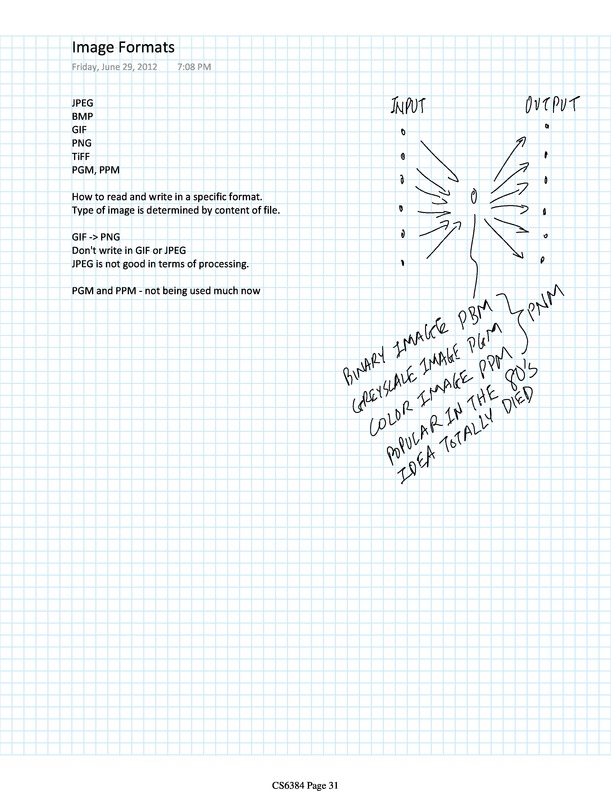 Image Formats
Friday, June 29, 2012 7:08 PM
JPEG
BMP
GIF
PNG
TiFF
PGM, PPM
How to read and write in a specific format.
Type of image is determined by content of file.
GIF -> PNG
Don't write in GIF or JPEG
JPEG is not good in terms of processing.
PGM and PPM - not being used much now
INPUT OUTPUT
BINARY IMAGE PBM
GREYSCALE IMAGE PGM
COLOR IMAGE PPM
PNM
POPULAR IN THE 80'S
IDEA TOTALLY DIED
CS6384 Page 31